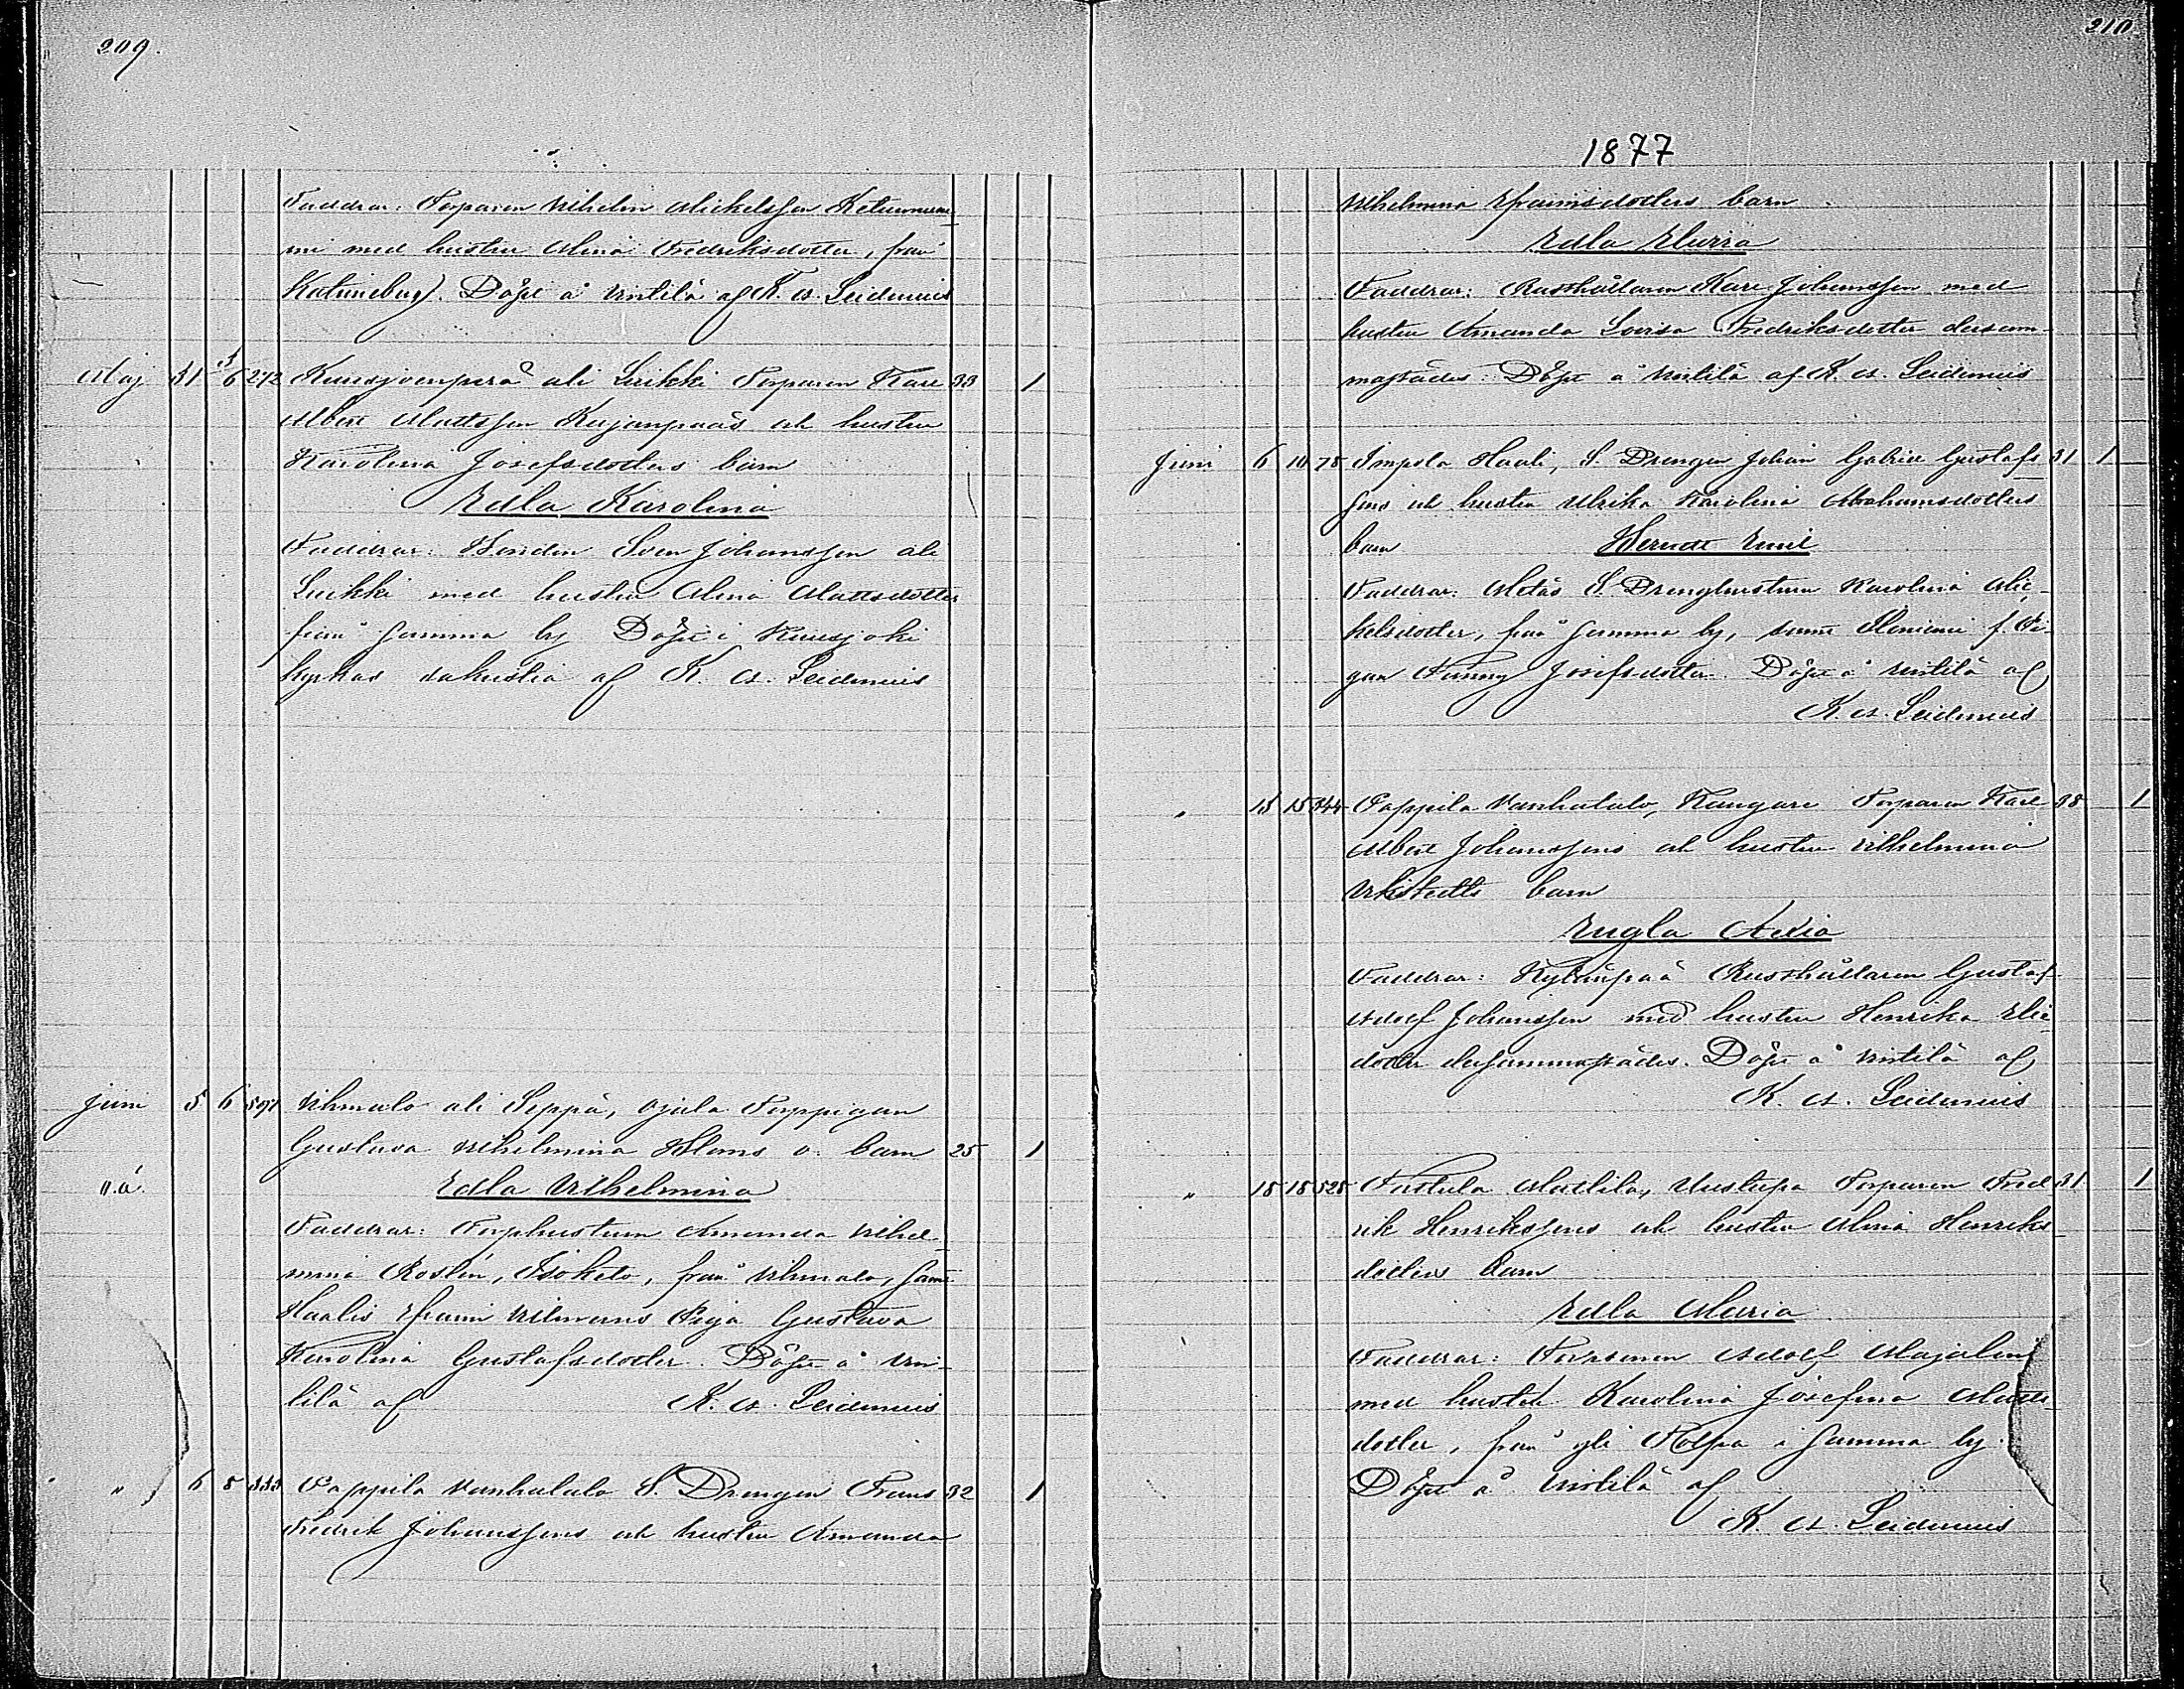 209.
Faddrar: Torparen Vilhelm Mickelsson Ketunnie
mi med hustru Alina Fredriksdotter, från
Katineby. Döpt å Uotilä af K. A. Leidenius
Maj 31 3/6 272 Kuusjoenperä ali Seikki Torparen Karl 33 1
Albert Mattsson Kujanpääs och hustru
Karolina Josefsdotters barn
Edla Karolina
Faddrar: Bonden Sven Johansson ali
Seikki med hustru Alina Mattsdotter
från samma by Döpt i Kuusjoki
kyrkas sakristia af K. A. Leidenius
Juni 5 6 597 Vihmalo ali Seppä, Ojala Torppigan
Gustava Vilhelmina Bloms o. barn 25 1
o.ä.
Edla Vilhelmina
Faddrar: Torphustrun Amanda Vilhel-
mina Roslin, Isoketo, från Vihmalo, samt
Haalis Efraim Vilmuns Piga Gustava
Karolina Gustafsdotter. Döpt å
tilä af K. A. Leidenius
" 6 8 333 Pappila Vanhatalo S. Drengen Frans 32 1
Fredrik Johanssons och hustru Amanda
210.
1877
Vilhelmina Efraimsdotters barn
Edla Elvira
Faddrar: Rusthållaren Karl Johansson med
hustru Amanda Lovisa Fredriksdotter dersam-
mastädes. Döpt å af K. A. Leidenius
Juni 6 10 78 Impola Haali, S. Drengen Johan Gabriel Gustafs- 31 1
sons och hustru Ulrika Karolina Abrahamsdotters
barn Berndt Emil
Faddrar: S. Drenghustrun Karolina Mic-
kelsdotter, från samma by, samt f. Pi-
gan Fanny Josefsdotter. Döpt å af
K. A. Leidenius
" 15 15 344 Pappila Vanhatalo, Kangare Torparen Karl 38 1
Albert Johanssons och hustru Vilhelmina
Ekstedts barn
Engla Alexia
Faddrar: Kylänpää Rusthållaren Gustaf
Adolf Johansson med hustru Henrika Elie-
dotter dersammastädes. Döpt å af
K. A. Leidenius
" 18 18 525 Pustula Mattila, Uustupa Torparen Fred- 31 1
rik Henrikssons och hustru Alina Henriks-
dotters barn
Edla Maria
Faddrar: Torparen Adolf Majalin
med hustru Karolina Josefina Matts-
dotter, från yli Rolfva i samma by.
Döpt å af
K. A. Leidenius